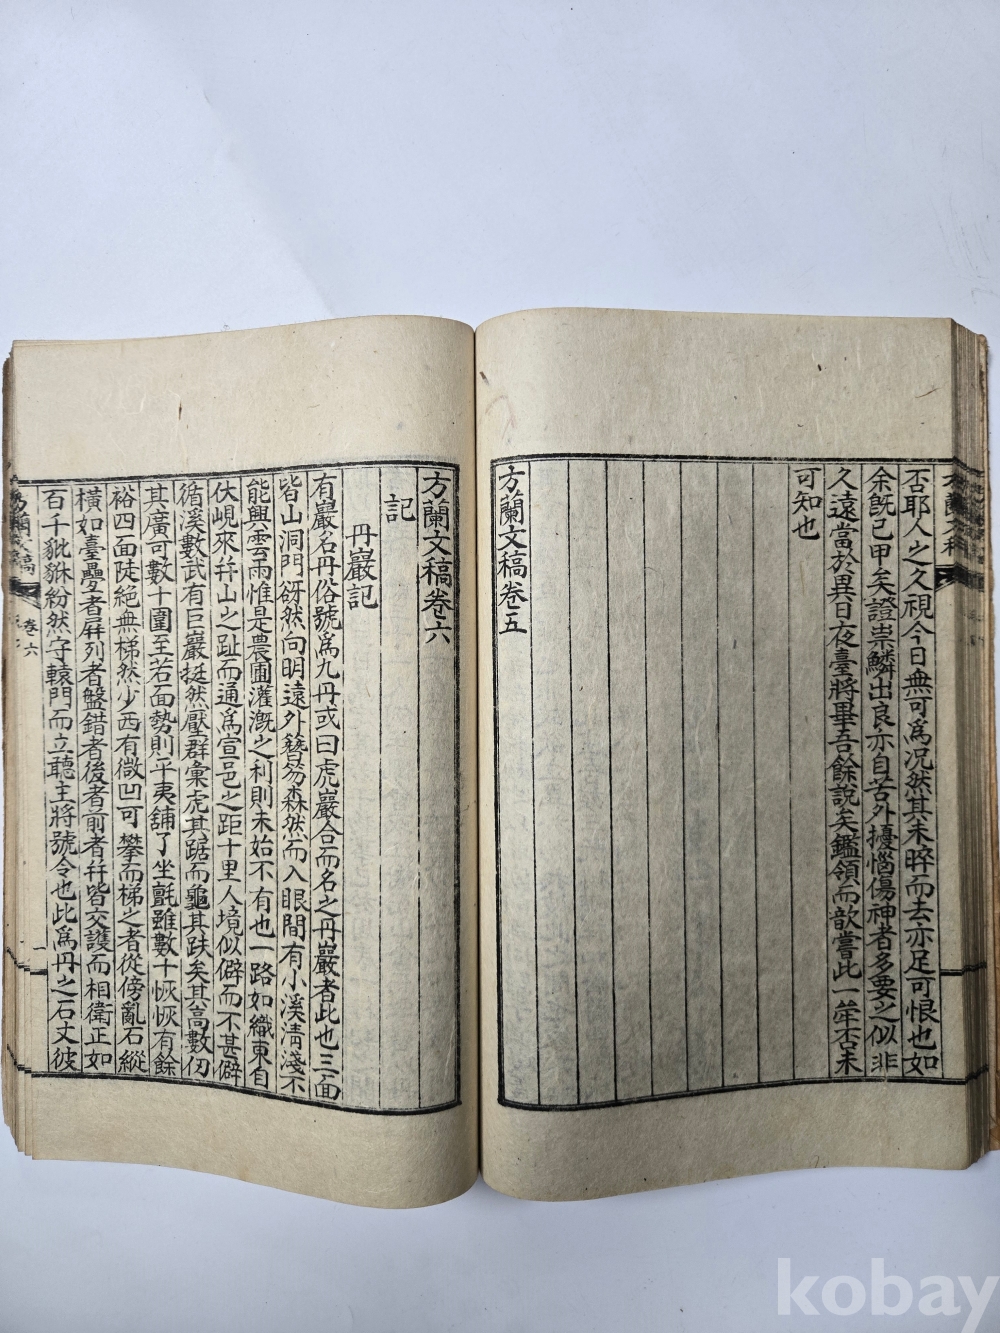 否耶人之久視今日無可爲況然其未晬而去亦足可恨也如
余旣已甲矣證祟鱗出良亦自苦外擾惱傷神者多要之似非
久遠當於異日夜臺將畢吾餘說矣鑑領而歆嘗此一犖否未
可知也
方蘭文稿卷五
方蘭文稿卷六
記
丹巖記
有巖名丹俗號爲九丹或曰虎巖合而名之丹巖者此也三面
皆山洞門谺然向明遠外簪笏森然而入眼間有小溪淸淺不
能興雲雨惟是農圃灌漑之利則未始不有也一路如織東自
伏峴來幷山之趾而通爲宣邑之距十里人境似僻而不甚僻
循溪數武有巨巖挺然壓群彙虎其踞而龜其趺矣其高數仞
其廣可數十圍至若面勢則平夷舖了坐氈雖數十恢恢有餘
裕四面陡絶無梯然少西有微凹可攀而梯之者從傍亂石縱
橫如臺壘者屛列者盤錯者後者前者幷皆交護而相衛正如
百千豼貅紛然守轅門而立聽主將號令也此爲丹之石丈彼
卷六
kobay